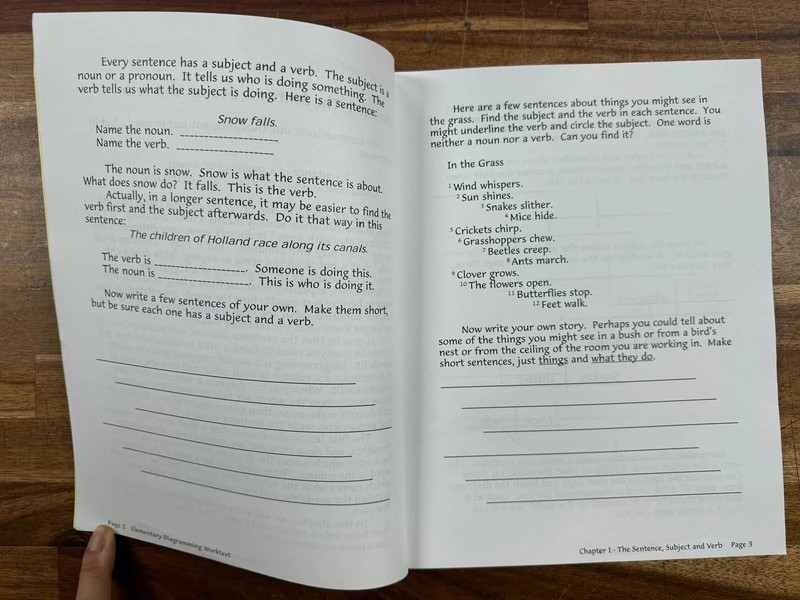 Every sentence has a subject and a verb. The subject is a
noun or a pronoun. It tells us who is doing something. The
verb tells us what the subject is doing. Here is a sentence:
Snow falls.
Name the noun. ____________________
Name the verb. ____________________
The noun is snow. Snow is what the sentence is about.
What does snow do? It falls. This is the verb.
Actually, in a longer sentence, it may be easier to find the
verb first and the subject afterwards. Do it that way in this
sentence:
The children of Holland race along its canals.
The verb is ____________________. Someone is doing this.
The noun is ____________________. This is who is doing it.
Now write a few sentences of your own. Make them short,
but be sure each one has a subject and a verb.
Page 2 Elementary Diagramming Worktext
Here are a few sentences about things you might see in
the grass. Find the subject and the verb in each sentence. You
might underline the verb and circle the subject. One word is
neither a noun nor a verb. Can you find it?
In the Grass
1 Wind whispers.
2 Sun shines.
3 Snakes slither.
4 Mice hide.
5 Crickets chirp.
6 Grasshoppers chew.
7 Beetles creep.
8 Ants march.
9 Clover grows.
10 The flowers open.
11 Butterflies stop.
12 Feet walk.
Now write your own story. Perhaps you could tell about
some of the things you might see in a bush or from a bird's
nest or from the ceiling of the room you are working in. Make
short sentences, just things and what they do.
Chapter 1 - The Sentence, Subject and Verb Page 3